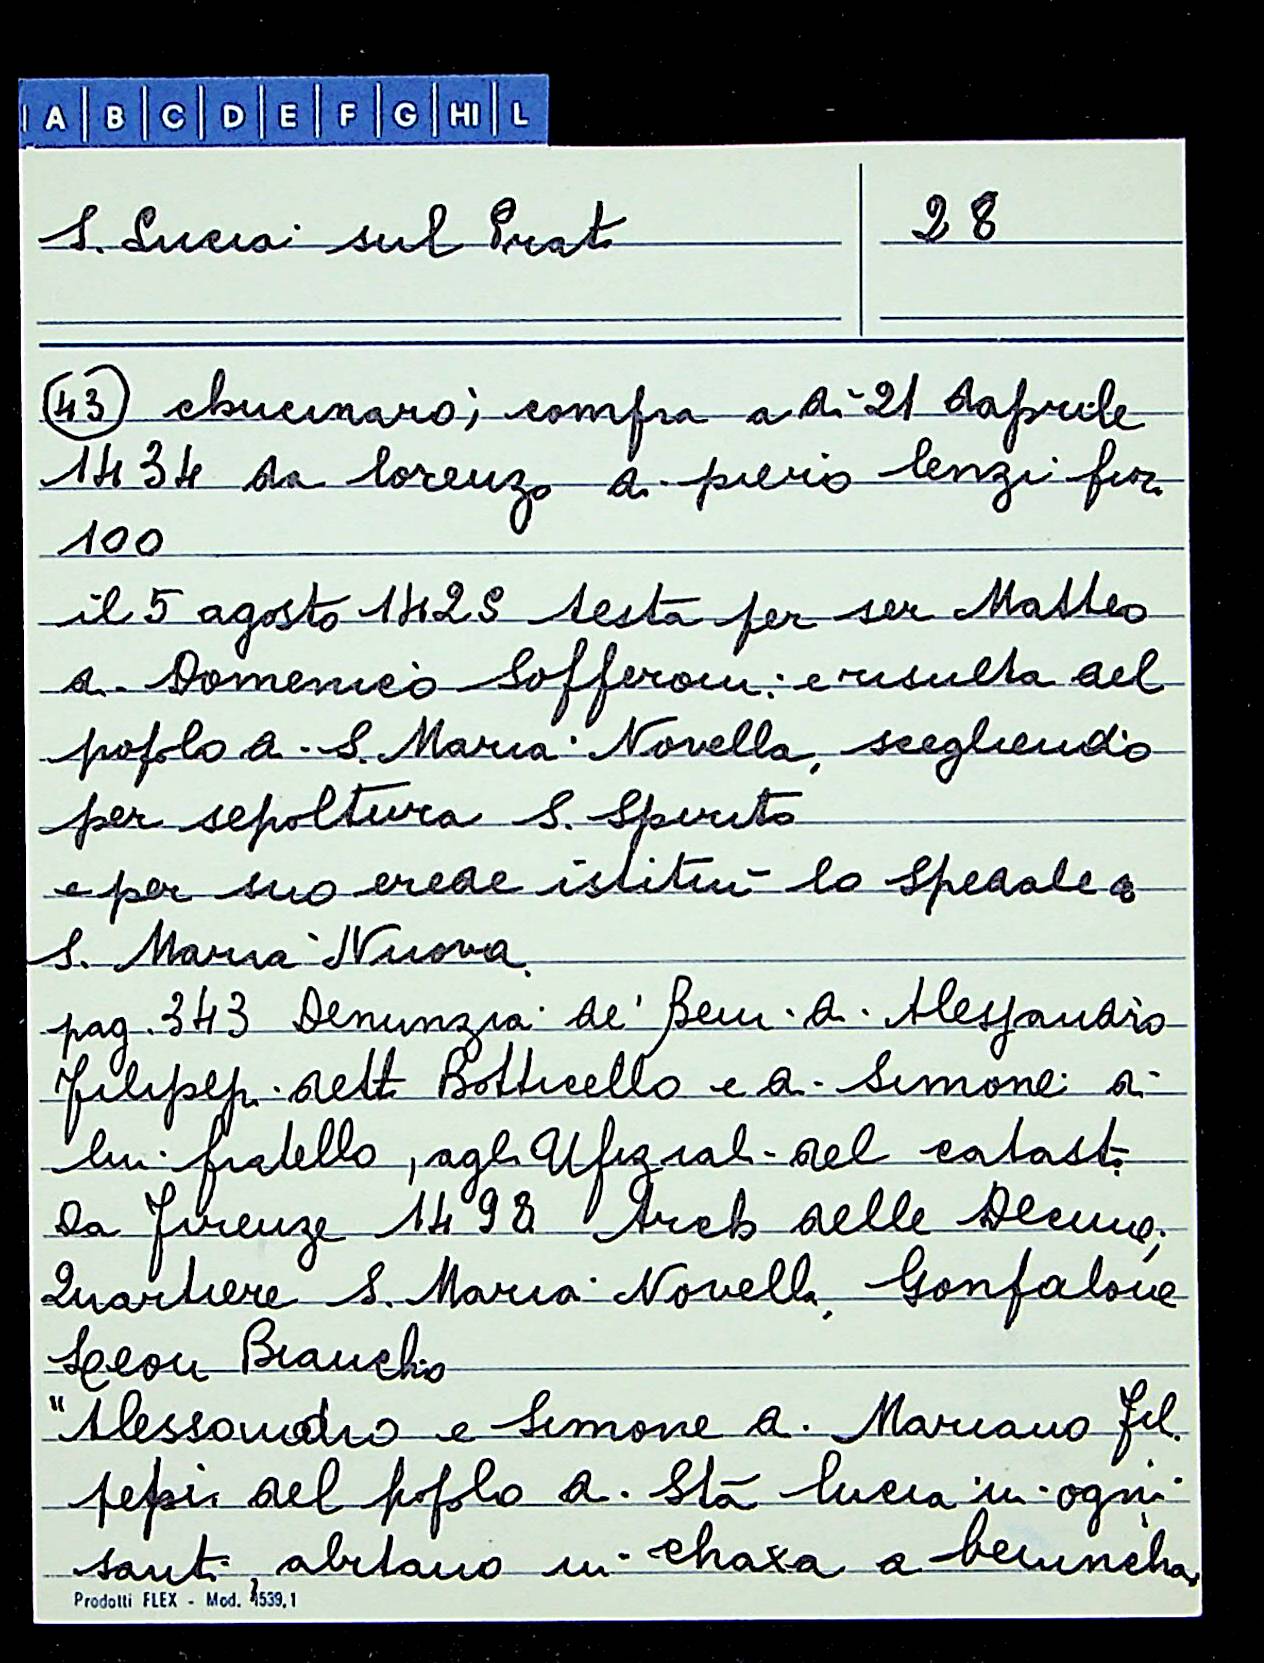 A B C D E F G HI L
S. Lucia sul Prato
28
(43) chucinaro; compra a dì 21 daprile
1434 da lorenzo di piero lenzi fior.
100
il 5 agosto 1429 testa per ser Matteo
di Domenico Sofferoni: e risulta del
popolo di S. Maria Novella, scegliendo
per sepoltura S. Spirito
e per suo erede istituì lo Spedale di
S. Maria Nuova.
pag. 343 Denunzia de' Beni di Alessandro
Filipepi detto Botticello e di Simone di
lui fratello, agli Ufiziali del catasto
da Firenze 1498 Arch delle Decime;
Quartiere S. Maria Novella, Gonfalone
Leon Biancho
"Alessandro e Simone di Mariano Fil.
pepi del popolo di Stā lucia in ogni
santi, abitano in chaxa a
Prodotti FLEX - Mod. 4539.1